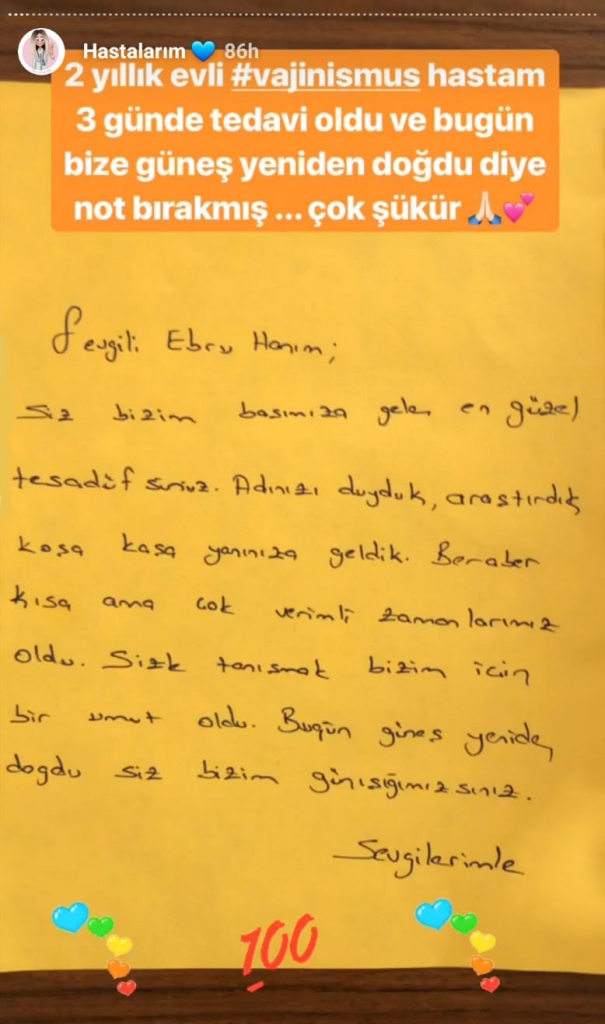 Hastalarım 💙 86h
2 yıllık evli #vajinismus hastam
3 günde tedavi oldu ve bugün
bize güneş yeniden doğdu diye
not bırakmış ... çok şükür 🙏🏻💕
Sevgili Ebru Hanım;
Siz bizim basımıza gelen en güzel
tesadüfsünüz. Adınızı duyduk, arastırdık
kosa kosa yanınıza geldik. Beraber
kısa ama cok verimli zamanlarımız
oldu. Sizle tanısmak bizim icin
bir umut oldu. Bugün günes yeniden
dogdu siz bizim günısığımızsınız.
Sevgilerimle
100